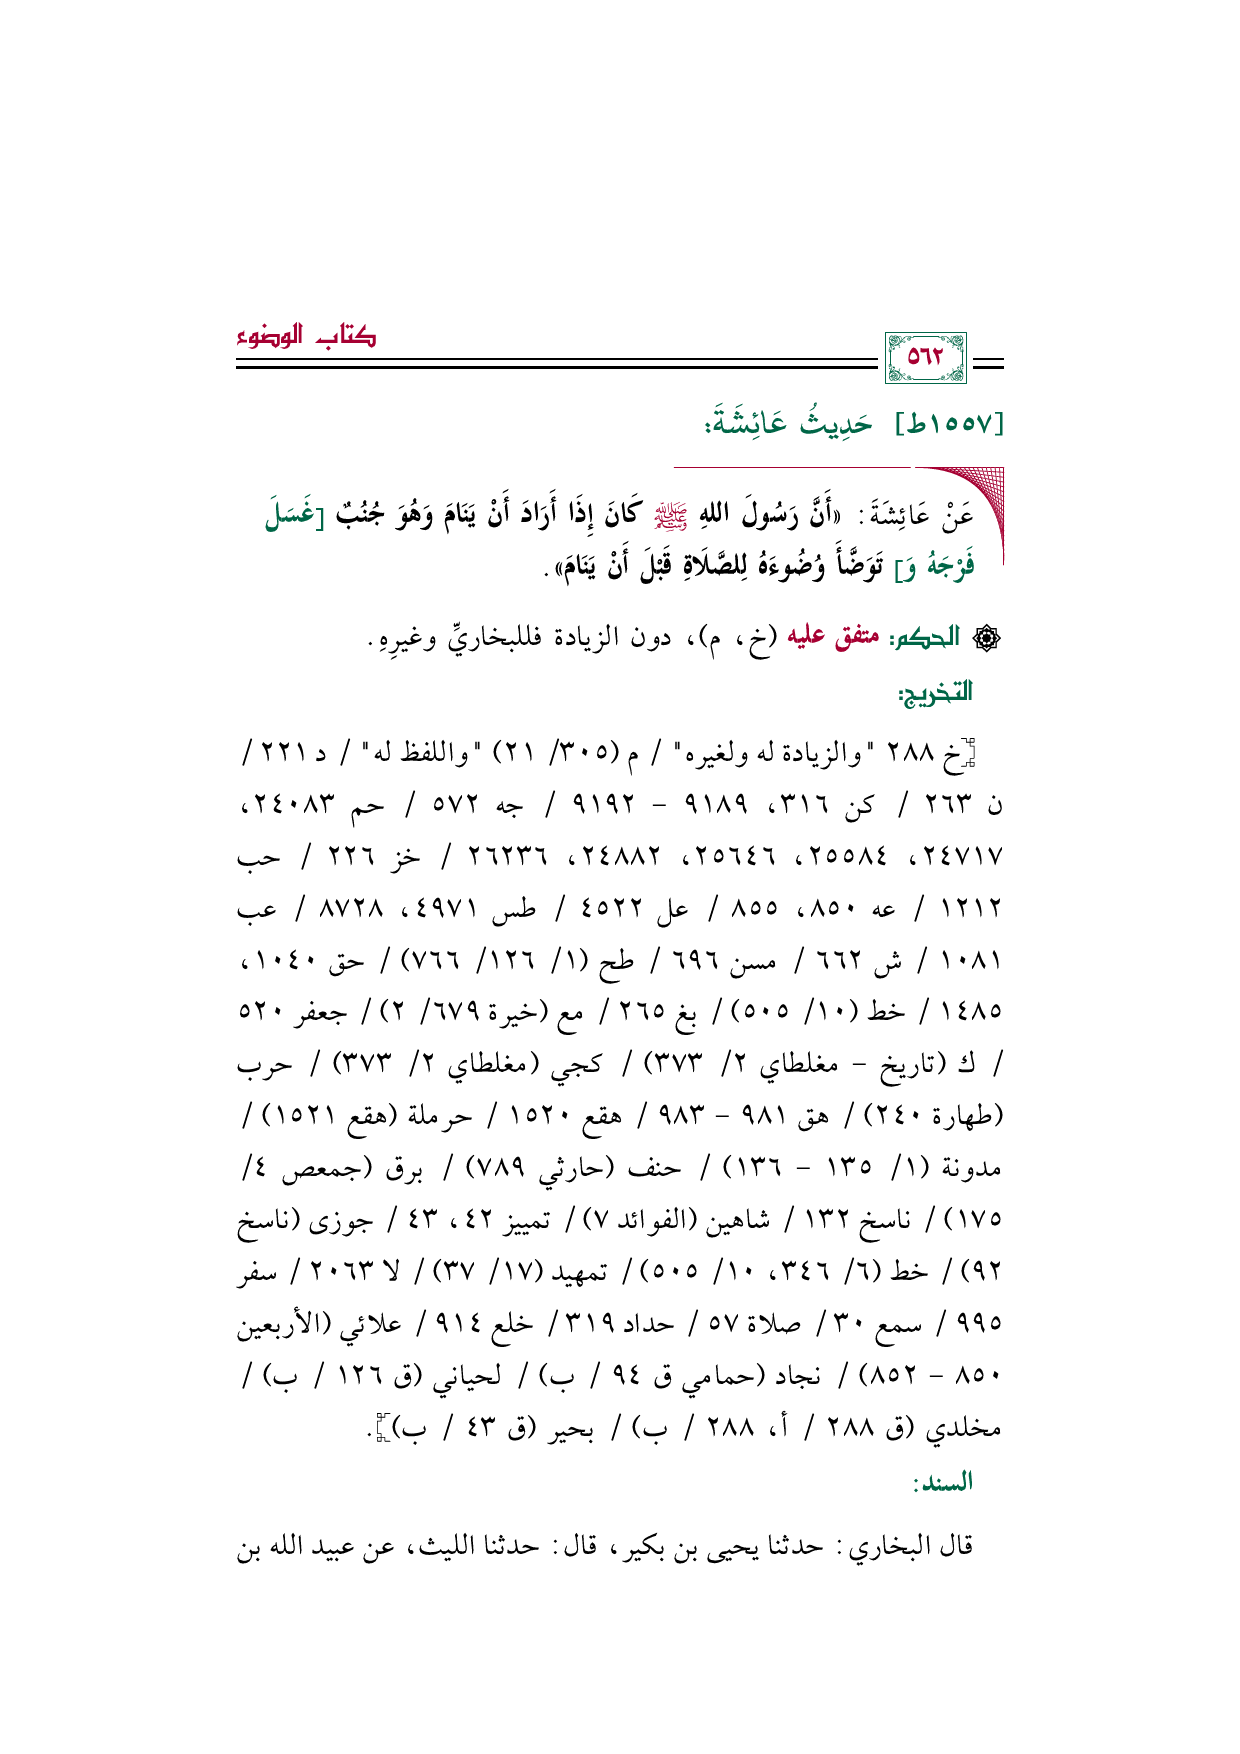 كتاب الوضوء
٥٦٢
[١٥٥٧ط] حَدِيثُ عَائِشَةَ:
عَنْ عَائِشَةَ: «أَنَّ رَسُولَ اللهِ ﷺ كَانَ إِذَا أَرَادَ أَنْ يَنَامَ وَهُوَ جُنُبٌ [غَسَلَ
فَرْجَهُ وَ] تَوَضَّأَ وُضُوءَهُ لِلصَّلَاةِ قَبْلَ أَنْ يَنَامَ».
الحكم: متفق عليه (خ، م)، دون الزيادة فللبخاريِّ وغيرِهِ.
التخريج:
[خ ٢٨٨ "والزيادة له ولغيره" / م (٣٠٥/ ٢١) "واللفظ له" / د ٢٢١ /
ن ٢٦٣ / كن ٣١٦، ٩١٨٩ – ٩١٩٢ / جه ٥٧٢ / حم ٢٤٠٨٣،
٢٤٧١٧، ٢٥٥٨٤، ٢٥٦٤٦، ٢٤٨٨٢، ٢٦٢٣٦ / خز ٢٢٦ / حب
١٢١٢ / عه ٨٥٠، ٨٥٥ / عل ٤٥٢٢ / طس ٤٩٧١، ٨٧٢٨ / عب
١٠٨١ / ش ٦٦٢ / مسن ٦٩٦ / طح (١/ ١٢٦/ ٧٦٦) / حق ١٠٤٠،
١٤٨٥ / خط (١٠/ ٥٠٥) / بغ ٢٦٥ / مع (خيرة ٦٧٩/ ٢) / جعفر ٥٢٠
/ ك (تاريخ – مغلطاي ٢/ ٣٧٣) / كجي (مغلطاي ٢/ ٣٧٣) / حرب
(طهارة ٢٤٠) / هق ٩٨١ – ٩٨٣ / هقع ١٥٢٠ / حرملة (هقع ١٥٢١) /
مدونة (١/ ١٣٥ – ١٣٦) / حنف (حارثي ٧٨٩) / برق (جمعص ٤/
١٧٥) / ناسخ ١٣٢ / شاهين (الفوائد ٧) / تمييز ٤٢، ٤٣ / جوزى (ناسخ
٩٢) / خط (٦/ ٣٤٦، ١٠/ ٥٠٥) / تمهيد (١٧/ ٣٧) / لا ٢٠٦٣ / سفر
٩٩٥ / سمع ٣٠ / صلاة ٥٧ / حداد ٣١٩ / خلع ٩١٤ / علائي (الأربعين
٨٥٠ – ٨٥٢) / نجاد (حمامي ق ٩٤ / ب) / لحياني (ق ١٢٦ / ب) /
مخلدي (ق ٢٨٨ / أ، ٢٨٨ / ب) / بحير (ق ٤٣ / ب)].
السند:
قال البخاري: حدثنا يحيى بن بكير، قال: حدثنا الليث، عن عبيد الله بن